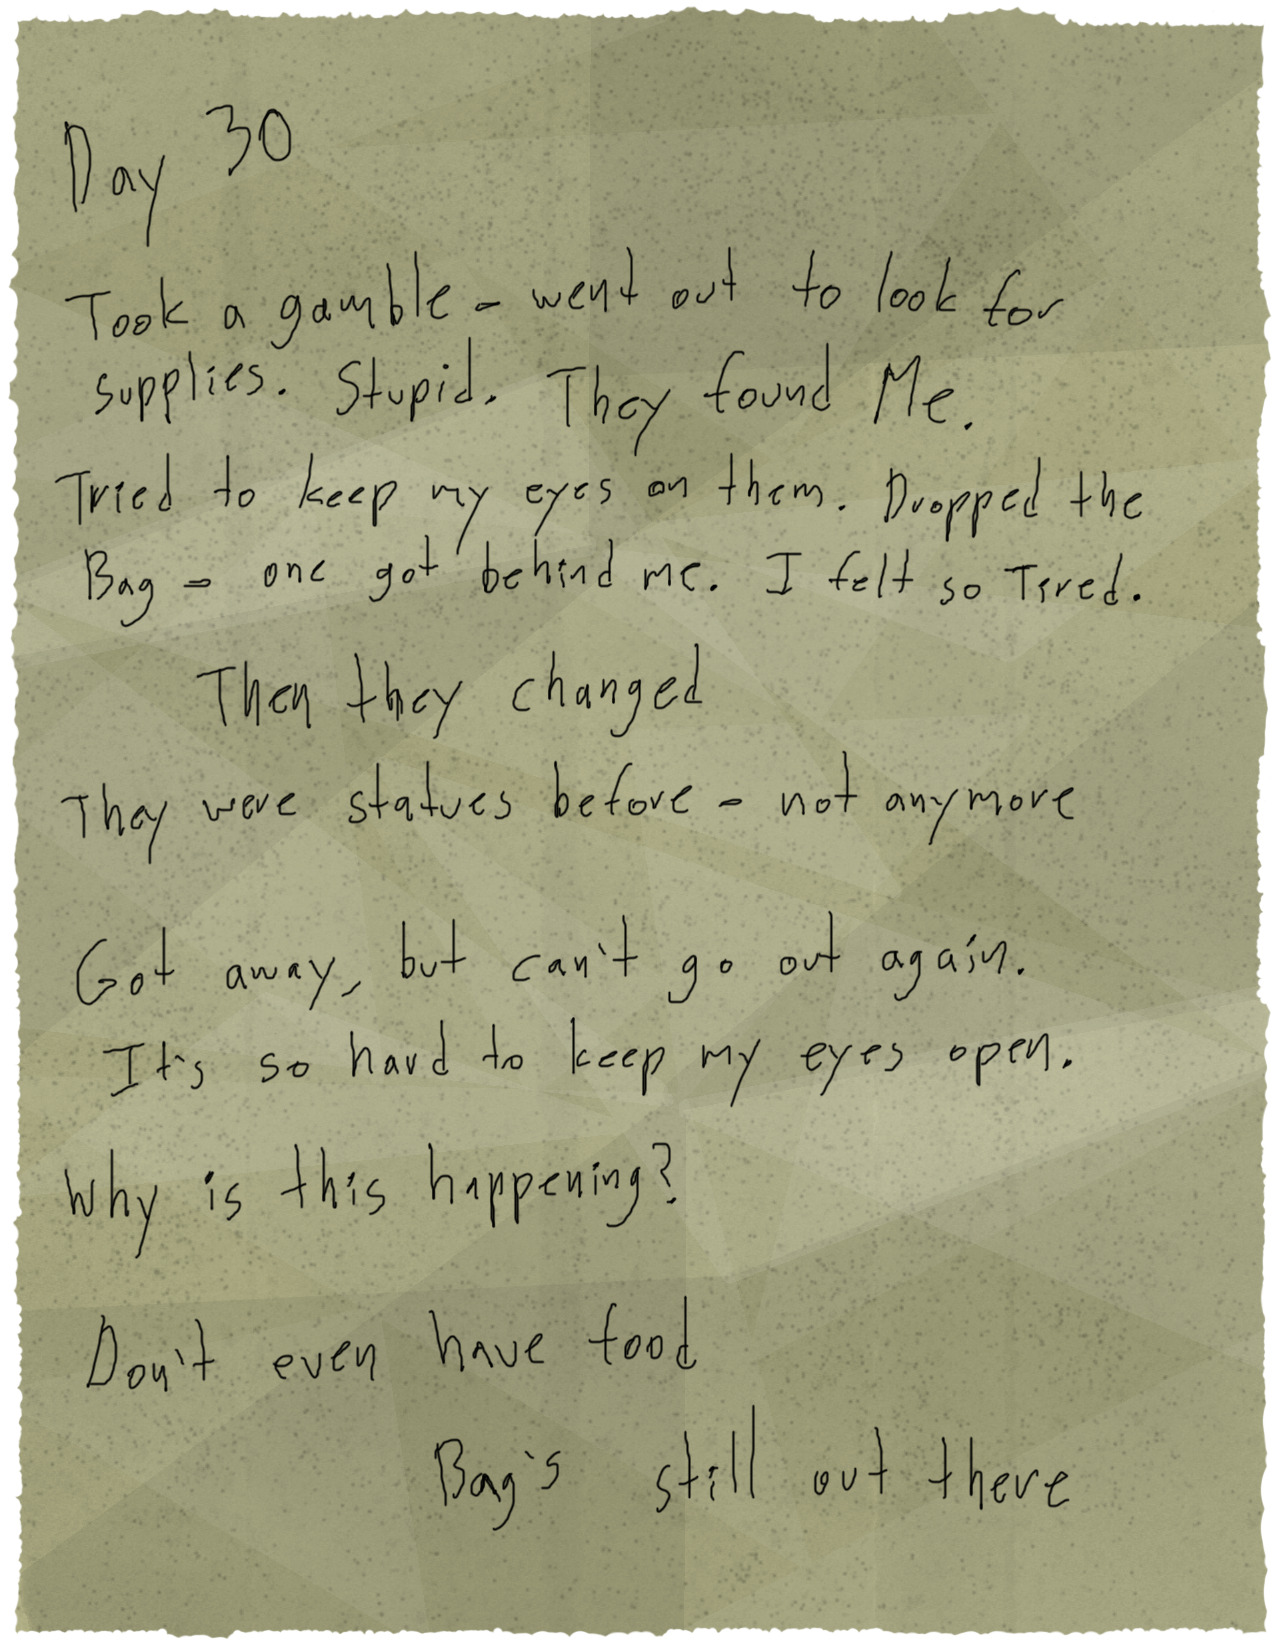 Day 30
Took a gamble - went out to look for
supplies. Stupid. They found Me.
Tried to keep my eyes on them. Dropped the
Bag - one got behind me. I felt so Tired.
Then they changed
They were statues before - not anymore
Got away, but can't go out again.
It's so hard to keep my eyes open.
Why is this happening?
Don't even have food
Bag's still out there